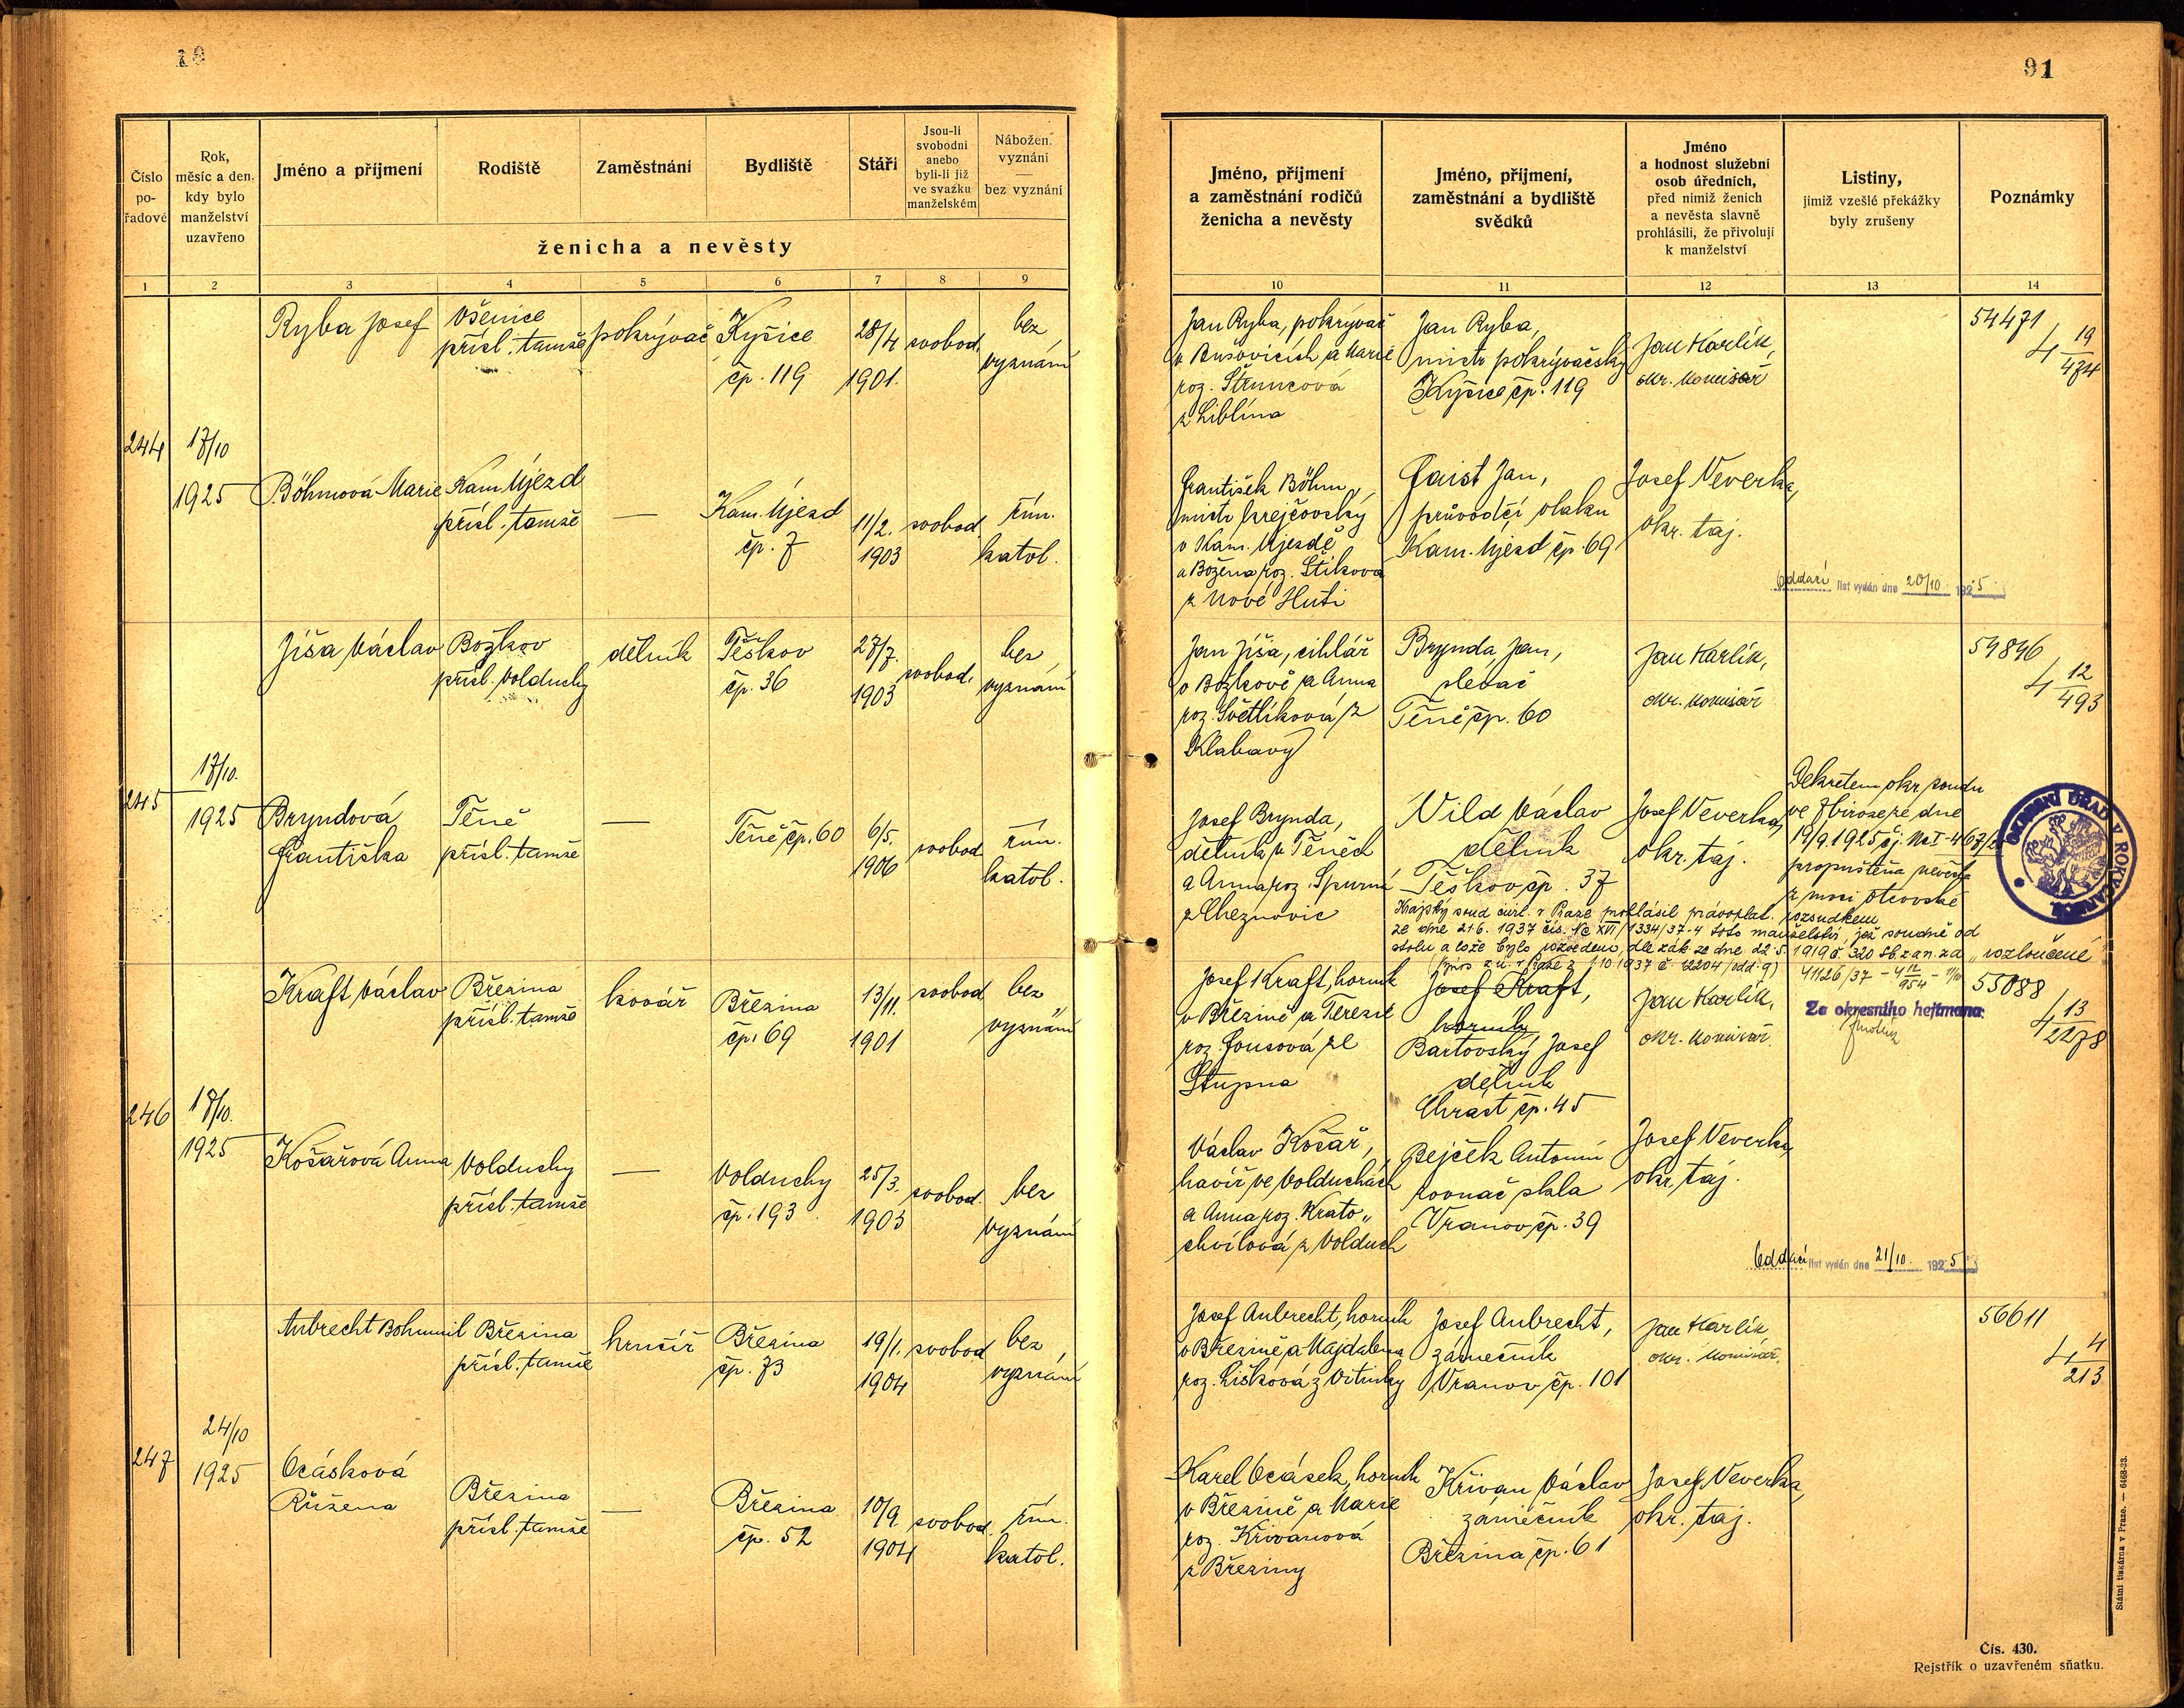 91
Číslo
po-
řadové
Rok,
měsíc a den,
kdy bylo
manželství
uzavřeno
Jméno a příjmení
Rodiště
Zaměstnání
Bydliště
Stáří
Jsou-li
svobodni
anebo
byli-li již
ve svazku
manželském
Nábožen.
vyznání
bez vyznání
ženicha a nevěsty
1 2 3 4 5 6 7 8 9
Jméno, příjmení
a zaměstnání rodičů
ženicha a nevěsty
Jméno, příjmení,
zaměstnání a bydliště
svědků
Jméno
a hodnost služební
osob úředních,
před nimiž ženich
a nevěsta slavně
prohlásili, že přivolují
k manželství
Listiny,
jimiž vzešlé překážky
byly zrušeny
Poznámky
10 11 12 13 14
244
17/10
1925
Ryba Josef
Všenice
přísl. tamže
pokrývač
Kyšice
čp. 119
28/4
1901.
svobod.
bez
vyznání
Jan Ryba, pokrývač
v Bušovicích a Marie
roz. Štruncová
z Liblína
Jan Ryba,
mistr pokrývačský
Kyšice čp. 119
Jan Karlík,
okr. komisař
54471
4 19/474
Böhmová Marie
Kam. Újezd
přísl. tamže
—
Kam. Újezd
čp. 7
11/2.
1903
svobod.
řím.
katol.
František Böhm,
mistr krejčovský
v Kam. Újezdě
a Božena roz. Štiková
z Nové Huti
Faist Jan,
průvodčí vlaku
Kam. Újezd čp. 69
Josef Veverka,
okr. taj.
Oddací list vydán dne 20/10. 1925
245
17/10.
1925
Jíša Václav
Božkov
přísl. Volduchy
dělník
Těškov
čp. 36
27/7.
1903
svobod.
bez
vyznání
Jan Jíša, cihlář
v Božkově a Anna
roz. Světlíková z
Klabavy
Brynda Jan,
slévač
Těně čp. 60
Jan Karlík,
okr. komisař
54896
4 12/493
Bryndová
Františka
Těně
přísl. tamže
—
Těně čp. 60
6/5.
1906
svobod
řím.
katol.
Josef Brynda,
dělník v Těních
a Anna roz. Spurná
z Cheznovic
Vild Václav
dělník
Těškov čp. 37
Josef Veverka,
okr. taj.
Dekretem okr. soudu
ve Zbiroze ze dne
19/9. 1925 čj. Nc I-467/2
propuštěna nevěsta
z moci otcovské
OKRESNÍ ÚŘAD V ROKYCANECH
Krajský soud civil. v Praze prohlásil právoplat. rozsudkem
ze dne 21.6. 1937 čís. Ck XVI/1334/37-4 toto manželství, jež soudně od
stolu a lože bylo rozvedeno, dle zák. ze dne 22.5. 1919 č. 320 Sb. z. a n. za „rozloučené“.
41126/37
Za okresního hejtmana:
246
17/10.
1925
Kraft Václav
Březina
přísl. tamže
kovář
Březina
čp. 69
13/11.
1901
svobod
bez
vyznání
Josef Kraft, horník
v Březině a Terezie
roz. Fousová ze
Stupna
Josef Kraft,
horník
Bartovský Josef
dělník
Chrást čp. 45
Jan Karlík,
okr. komisař.
55088
4 13/2278
Košařová Anna
Volduchy
přísl. tamže
—
Volduchy
čp. 193
25/3.
1903
svobod.
bez
vyznání
Václav Košař,
havíř ve Volduchách
a Anna roz. Krato„
chvílová z Volduch
Bejček Antonín
rovnač skla
Vranov čp. 39
Josef Veverka
okr. taj.
Oddací list vydán dne 21/10. 1925
247
24/10
1925
Aubrecht Bohumil
Březina
přísl. tamže
hrnčíř
Březina
čp. 73
19/1.
1904
svobod
bez
vyznání
Josef Aubrecht, horník
v Březině a Majdalena
roz. Lišková z Vitinky
Josef Aubrecht,
zámečník
Vranov čp. 101
Jan Karlík
okr. komisař.
56611
4 4/213
Ocásková
Růžena
Březina
přísl. tamže
—
Březina
čp. 52
10/9.
1904
svobod.
řím.
katol.
Karel Ocásek, horník
v Březině a Marie
roz. Křivanová
z Březiny
Křivan Václav
zámečník
Březina čp. 61
Josef Veverka,
okr. taj.
Státní tiskárna v Praze. — 6468-23.
Čís. 430.
Rejstřík o uzavřeném sňatku.